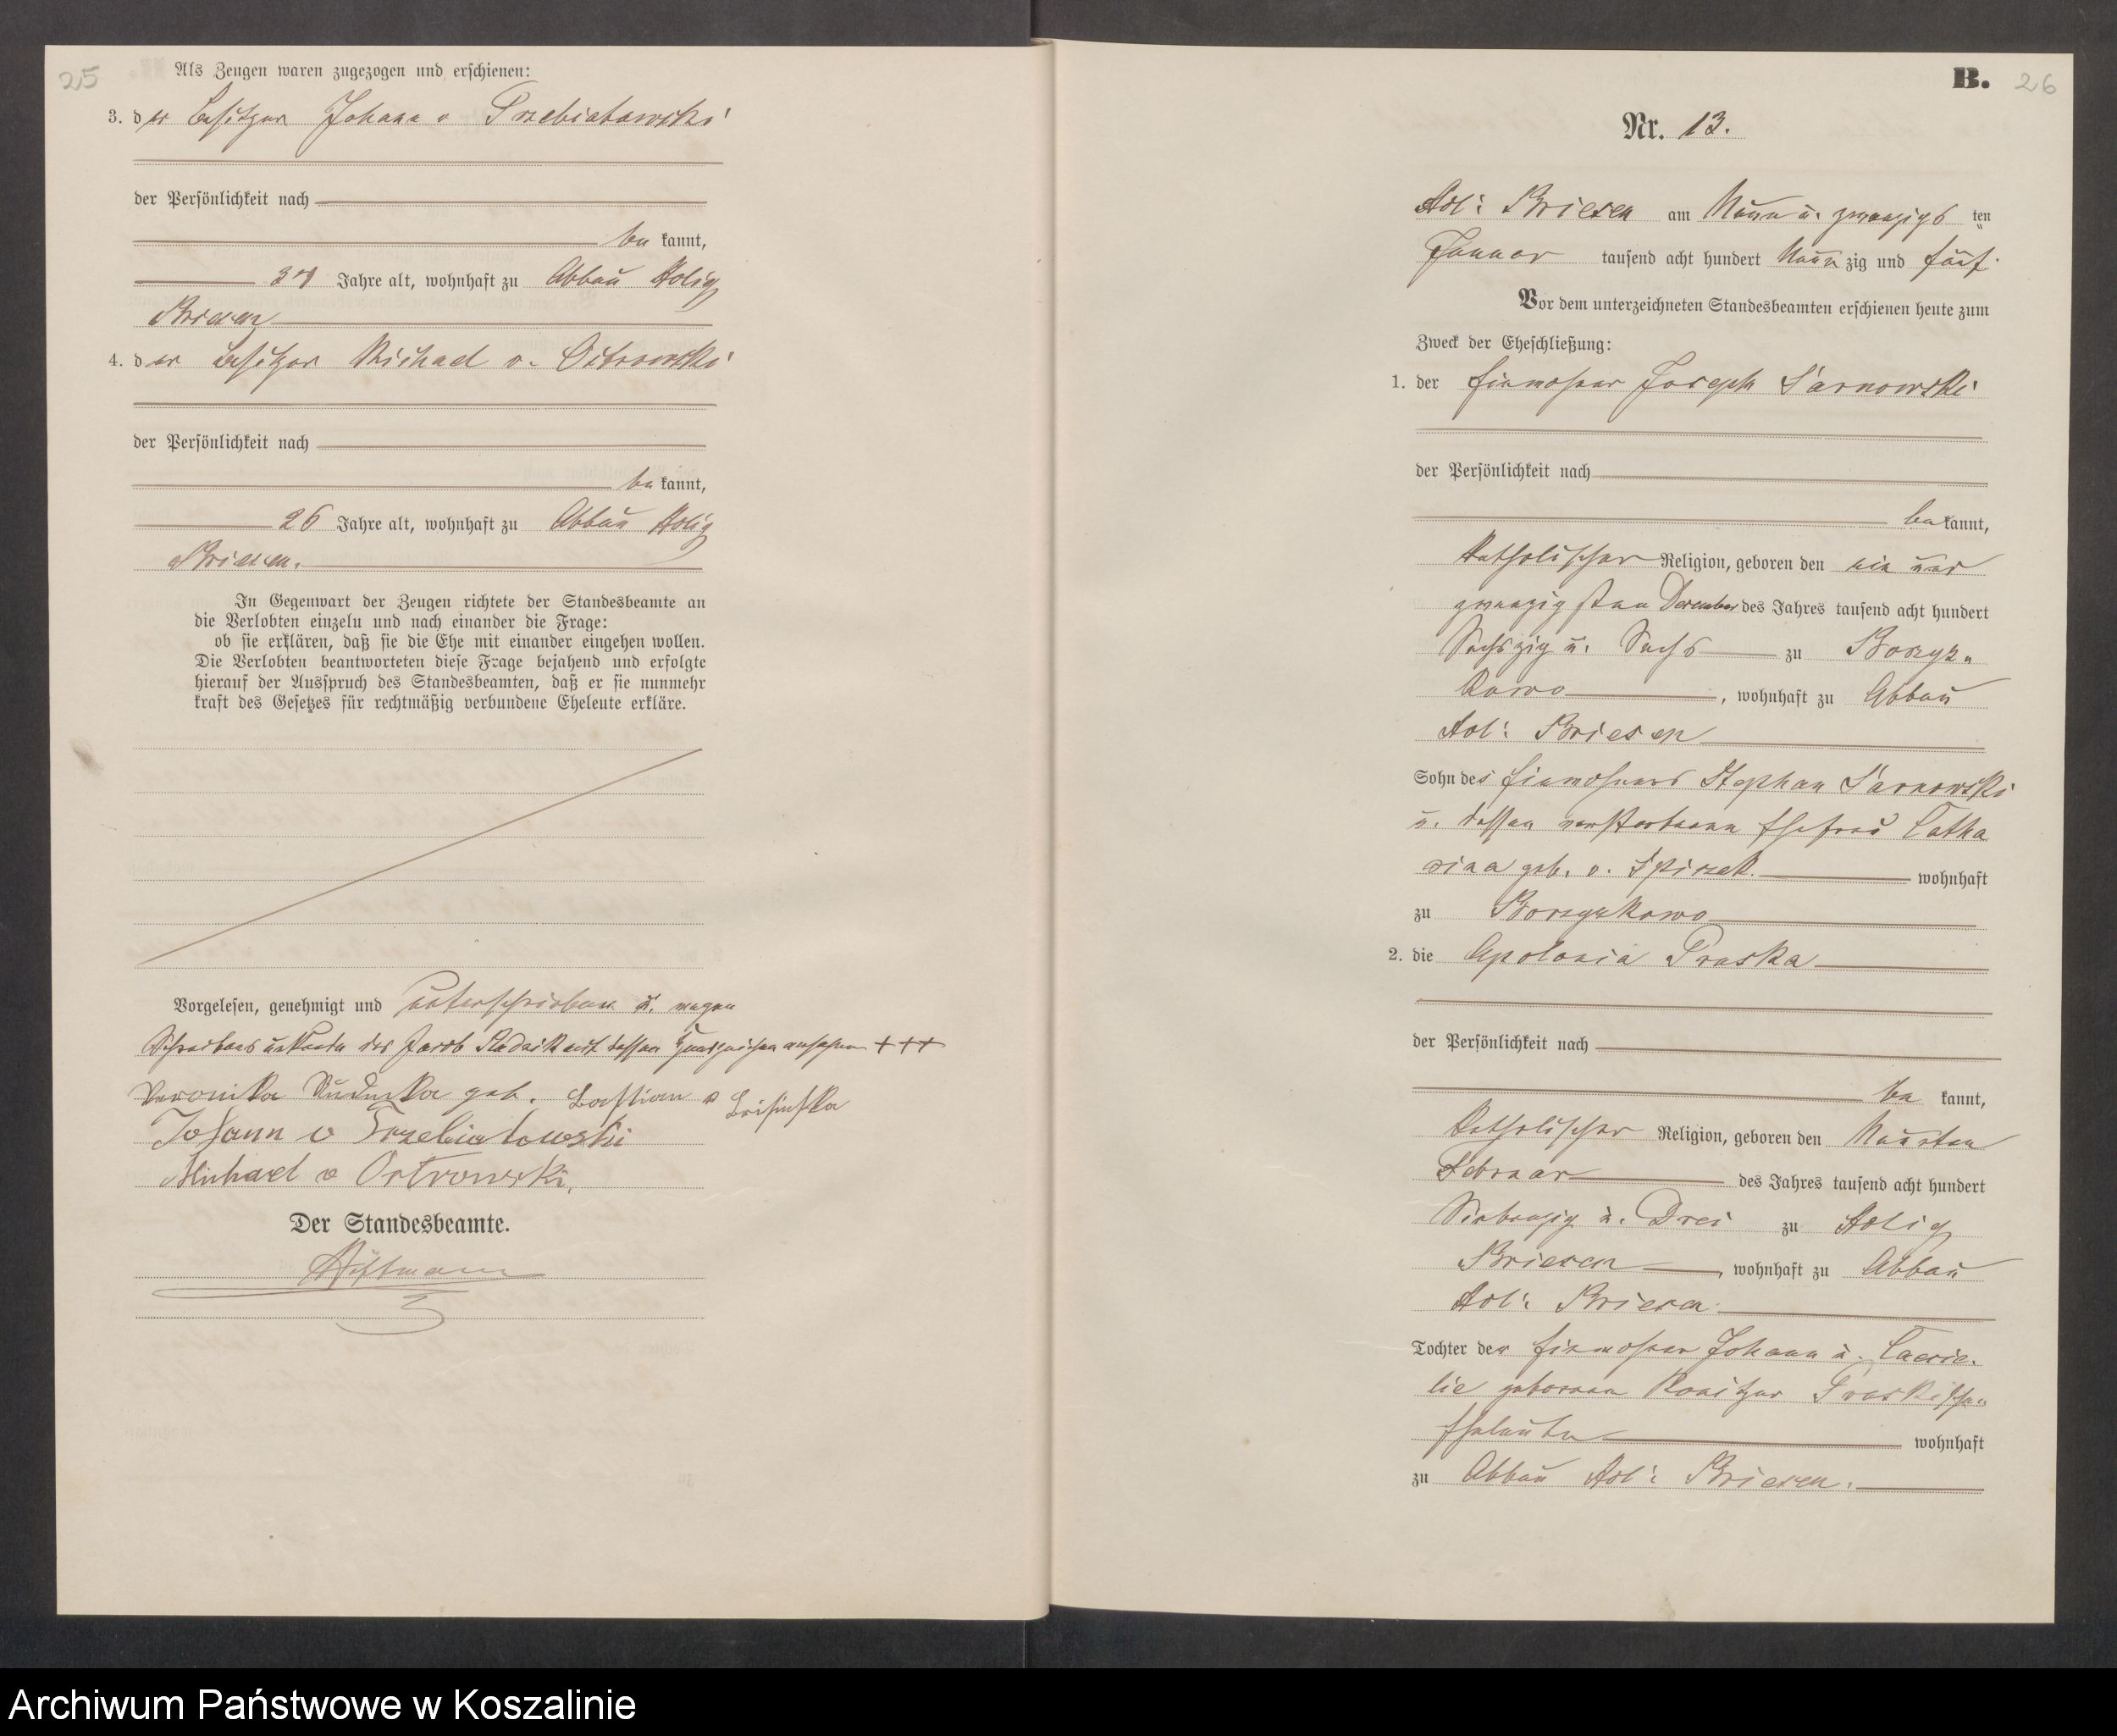 25
Als Zeugen waren zugezogen und erschienen:
3. der Besitzer Johann v Trzebiatowski
der Persönlichkeit nach
be kannt,
Jahre alt, wohnhaft zu Abbau Adlig
Briesen
4. der Besitzer Michael v. Ostrowski
der Persönlichkeit nach
be kannt,
26 Jahre alt, wohnhaft zu Abbau Adlig
Briesen.
In Gegenwart der Zeugen richtete der Standesbeamte an
die Verlobten einzeln und nach einander die Frage:
ob sie erklären, daß sie die Ehe mit einander eingehen wollen.
Die Verlobten beantworteten diese Frage bejahend und erfolgte
hierauf der Ausspruch des Standesbeamten, daß er sie nunmehr
kraft des Gesetzes für rechtmäßig verbundene Eheleute erkläre.
Vorgelesen, genehmigt und unterschrieben u. wegen
Schreibens unkunde des Jacob mit dessen Handzeichen versehen +++
Veronika geb.
Johann v Trzebiatowski
Michael v Ostrowski.
Der Standesbeamte.
B. 26
Nr. 13.
Adl: Briesen am Neun u. zwanzigs ten
Januar tausend acht hundert Neun zig und fünf.
Vor dem unterzeichneten Standesbeamten erschienen heute zum
Zweck der Eheschließung:
1. der Einwohner Joseph Sarnowski
der Persönlichkeit nach
be kannt,
Katholischer Religion, geboren den ein und
zwanzigsten December des Jahres tausend acht hundert
Sechszig u. Sechs zu Borzysz-
kowo, wohnhaft zu Abbau
Adl: Briesen
Sohn des Einwohners Stephan Sarnowski
u. dessen verstorbenen Ehefrau Catha
rina geb. v. Spiczek. wohnhaft
zu Borzyszkowo
2. die Apolonia Pruska
der Persönlichkeit nach
be kannt,
Katholischer Religion, geboren den Neunten
Februar des Jahres tausend acht hundert
Siebenzig u. Drei zu Adlig
Briesen, wohnhaft zu Abbau
Adl: Briesen.
Tochter der Einwohner Johann u. Caeci-
lie geborenen Konitzer Pruski'schen
Eheleute wohnhaft
zu Abbau Adl: Briesen.
Archiwum Państwowe w Koszalinie